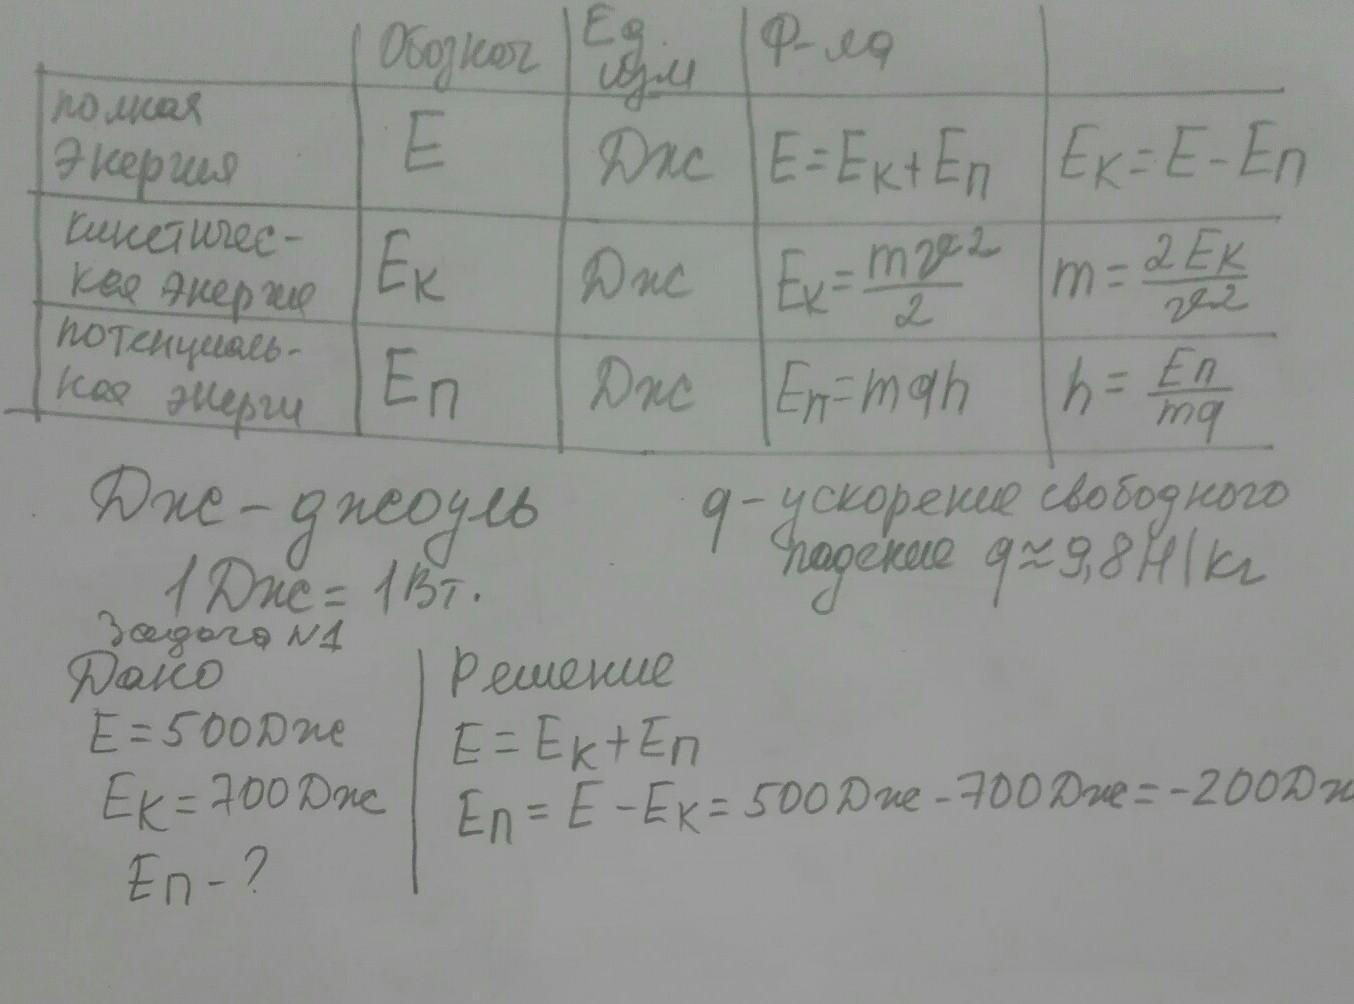 Обознач Ед. изм Ф-ла
полная энергия E Дж E = Eк + Eп Eк = E - Eп
кинетичес-кая энергия Eк Дж Eк = mv²/2 m = 2Eк/v²
потенциаль-ная энерги Eп Дж Eп = mgh h = Eп/mg
Дж - джоуль
g - ускорение свободного
падение g ≈ 9,8 Н/кг
1 Дж = 1 Вт.
Задача N1
Дано
Решение
E = 500 Дж
E = Eк + Eп
Eк = 700 Дж
Eп = E - Eк = 500 Дж - 700 Дж = -200 Дж
Eп - ?